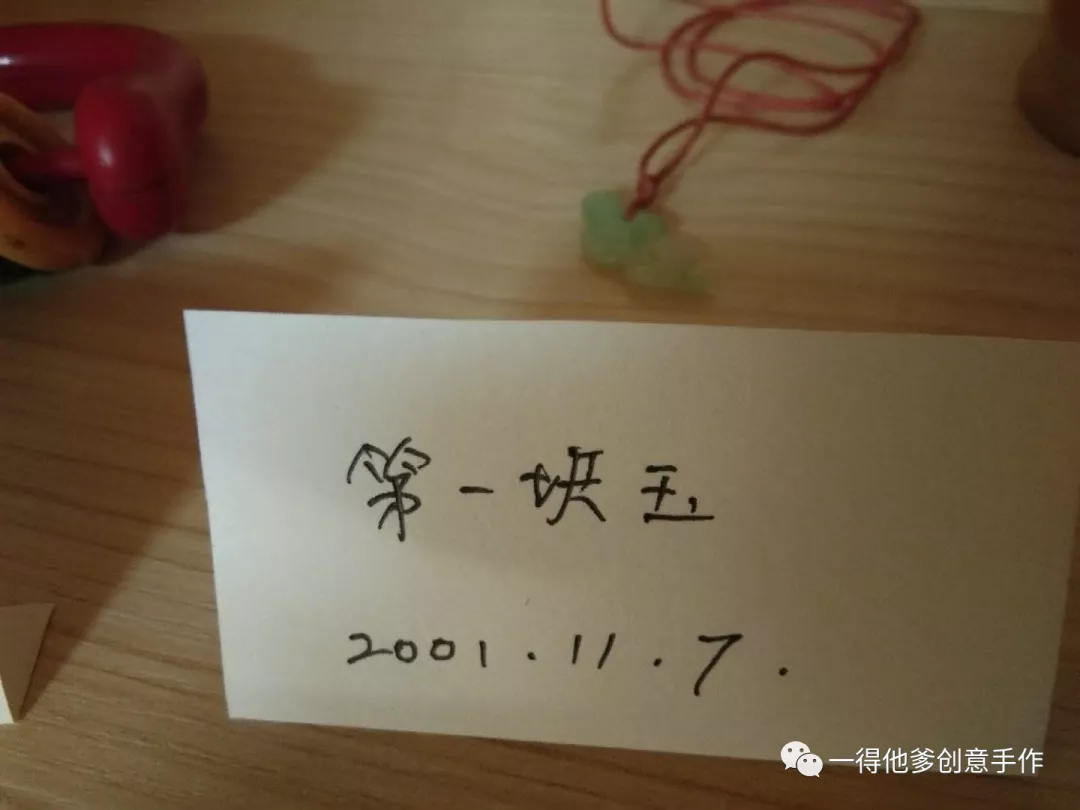 第一块玉
2001.11.7.
一得他爹创意手作